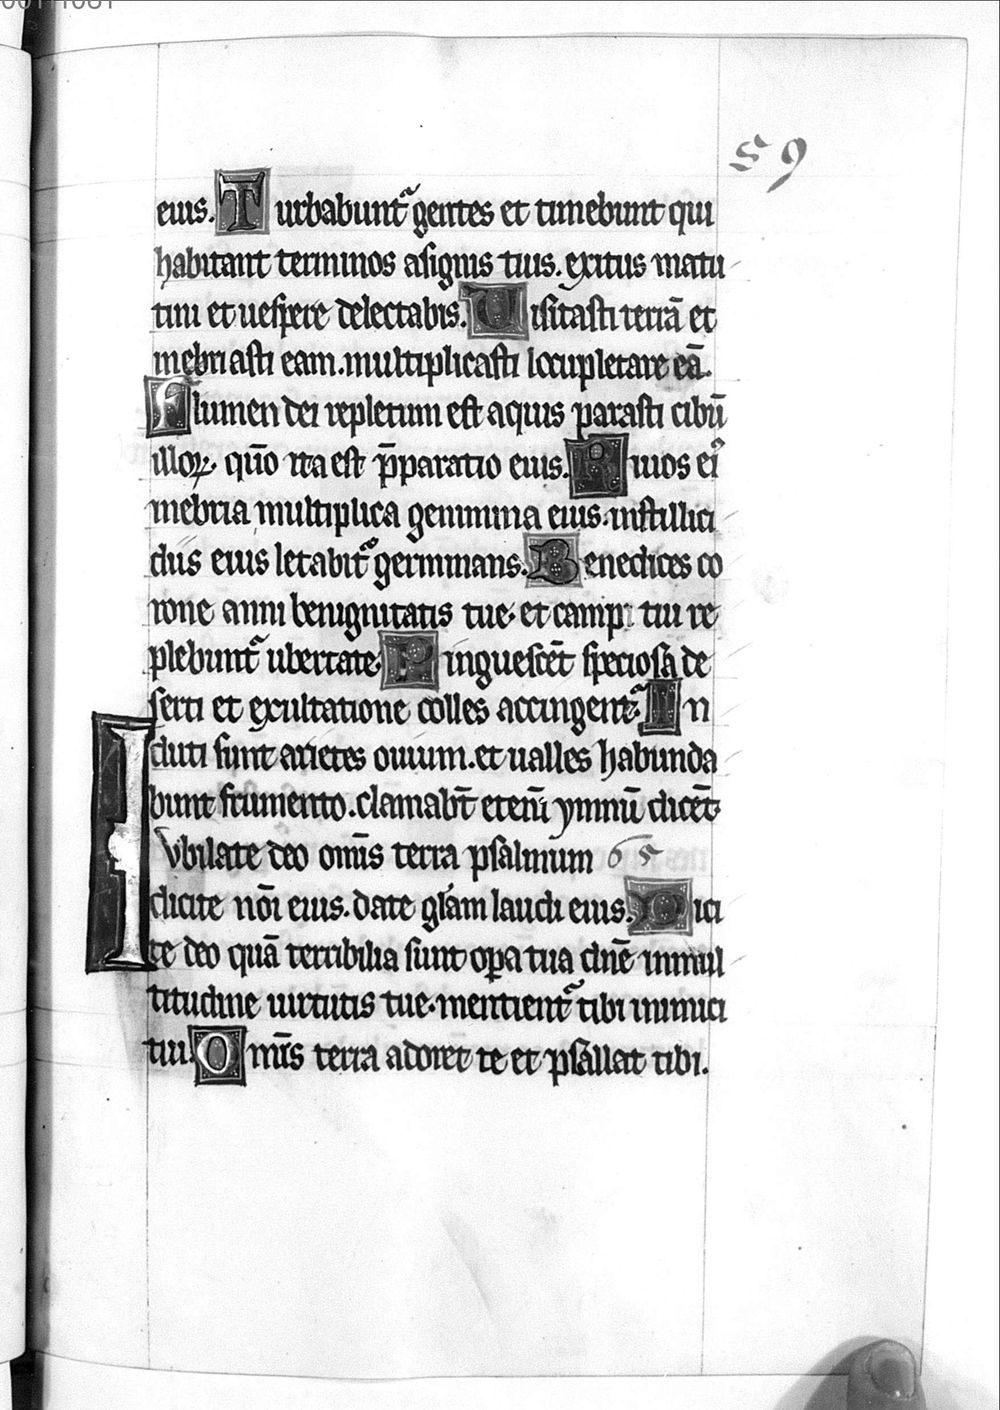 59
eius. Turbabunt᷑ gentes et timebunt qui
habitant terminos asignis tuis. exitus matu
tini et uespere delectabis. Uisitasti terrā et
inebriasti eam. multiplicasti locupletare eā.
Flumen dei repletum est aquis parasti cibū
illoꝝ. quō ita est p̄paratio eius. Riuos eiꝰ
inebria multiplica genimina eius. instillici
diis eius letabit᷑ germinans. Benedices co
rone anni benignitatis tue. et campi tui re
plebunt᷑ ubertate. Pinguescēt speciosa de
serti et exultatione colles accingent᷑. In
duti sunt arietes ouium. et ualles habunda
bunt frumento. clamabt̄ eteni᷑ ymnū dicēt.
Iubilate deo om̄is terra psalmum 65
dicite nōi eius. date gl̄am laudi eius. Dici
te deo quā terribilia sunt oꝑa tua dn̄e in mul
titudine uirtutis tue. mentient᷑ tibi inimici
tui. Om̄is terra adoret te et psallat tibi.